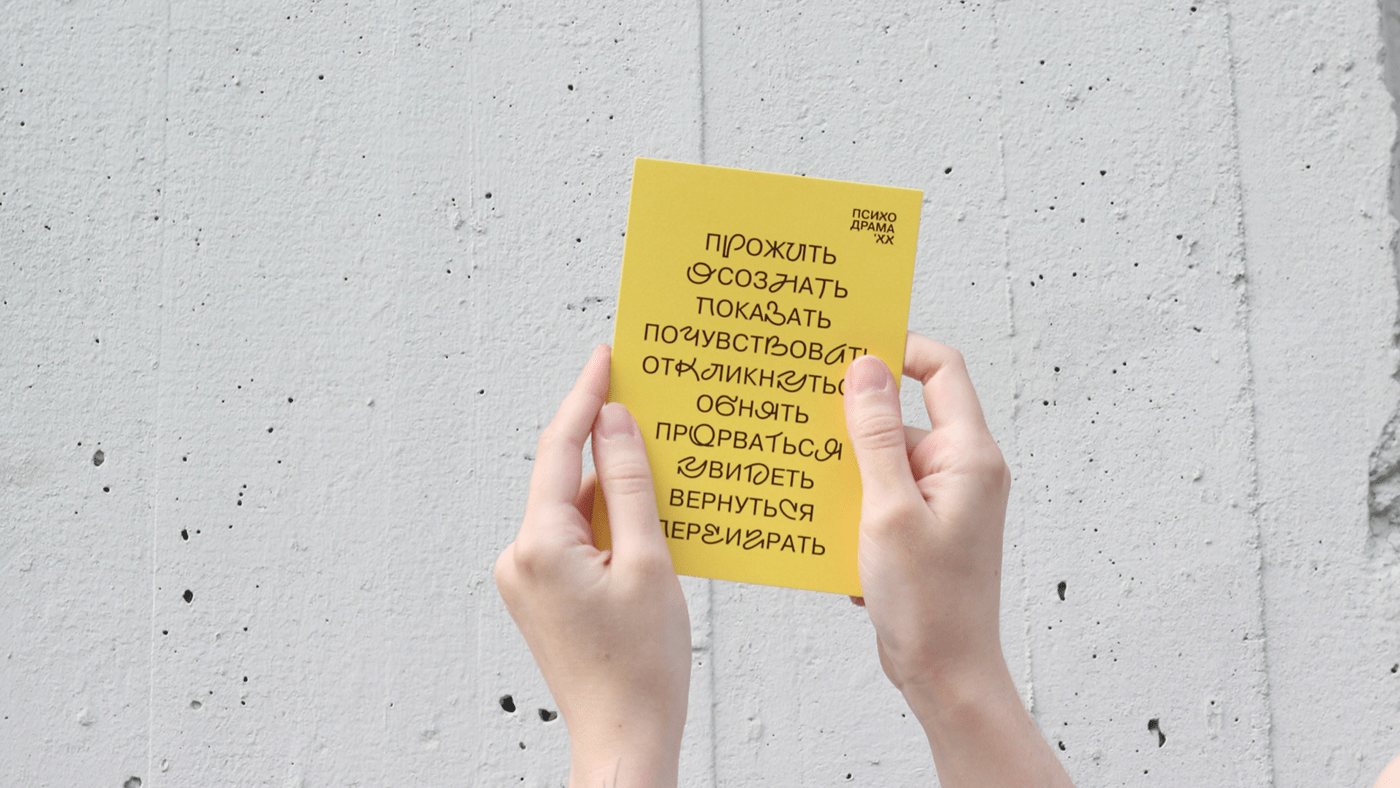 ПСИХО
ДРАМА
'XX
ПРОЖИТЬ
ОСОЗНАТЬ
ПОКАЗАТЬ
ПОЧУВСТВОВАТЬ
ОТКЛИКНУТЬСЯ
ОБНЯТЬ
ПРОРВАТЬСЯ
УВИДЕТЬ
ВЕРНУТЬСЯ
ПЕРЕИГРАТЬ